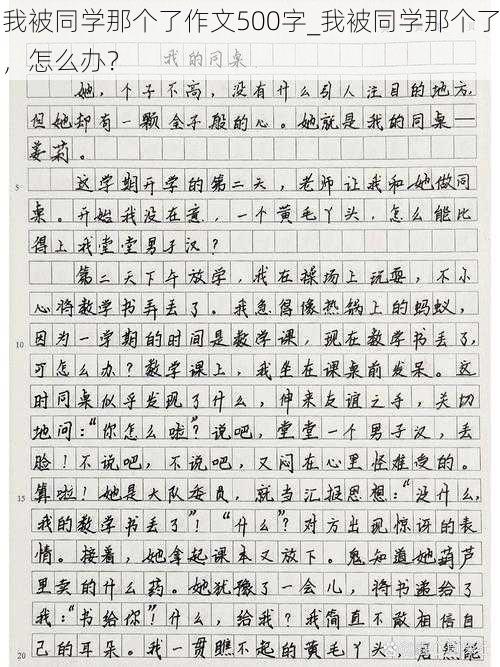 我被同学那个了作文500字_我被同学那个了
，怎么办？
我的同桌
她，个子不高，没有什么引人注目的地方，
但她却有一颗金子般的心。她就是我的同桌——
姜莉。
5 这学期开学的第二天，老师让我和她做同
桌。开始我没在意，一个黄毛丫头，怎么能比
得上我堂堂男子汉？
第二天下午放学，我在操场上玩耍，不小
心将数学书弄丢了。我急得像热锅上的蚂蚁，
10 因为一学期的时间是数学课，现在数学书丢了，
可怎么办？数学课上，我坐在课桌前发呆。这
时同桌似乎发现了什么，伸来友谊之手，关切
地问：“你怎么啦？”说吧，堂堂一个男子汉，丢
脸！不说吧，不说吧，又闷在心里怪难受的。
15 算啦！她是大队委员，就当汇报思想：“没什么，
我的数学书丢了”！“什么”？对方出现惊讶的表
情。接着，她拿起课本又放下。鬼知道她葫芦
里卖的什么药。她犹豫了一会儿，将书递给了
我：“书给你！什么，给我？我简直不敢相信自
20 己的耳朵。我一贯瞧不起的黄毛丫头，居然能